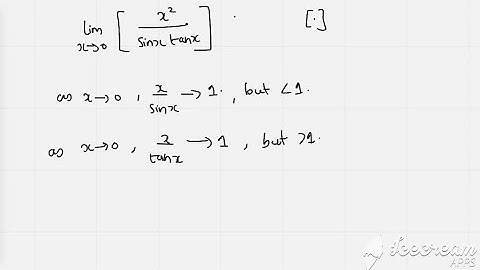 lim x→0 [ x² / sinx tanx ] · [.]
as x→0 , x/sinx → 1. , but < 1.
as x→0 , x/tanx → 1 , but > 1.
Icecream
APPS